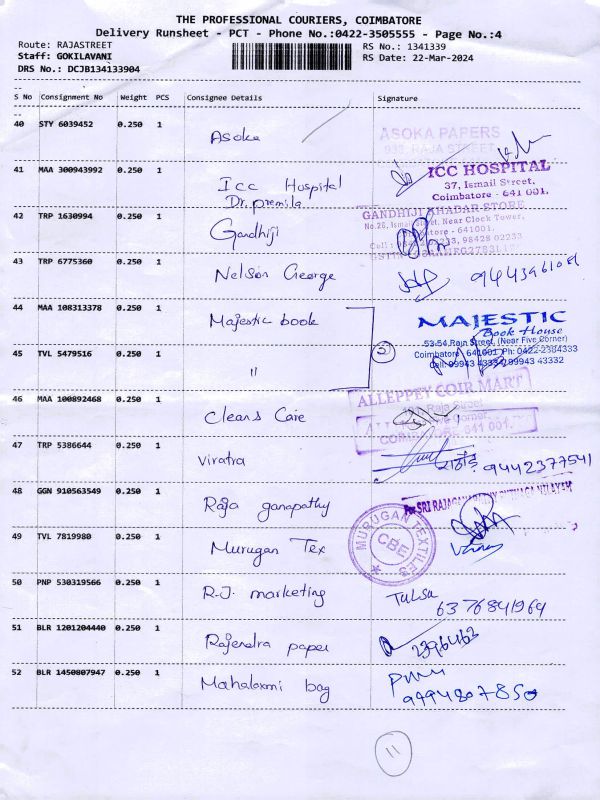 THE PROFESSIONAL COURIERS, COIMBATORE
Delivery Runsheet - PCT - Phone No.:0422-3505555 - Page No.:4
Route: RAJASTREET
RS No.: 1341339
Staff: GOKILAVANI
RS Date: 22-Mar-2024
DRS No.: DCJB134133904
S No Consignment No Weight PCS Consignee Details Signature
40 STY 6039452 0.250 1 Asoka
ASOKA PAPERS
RAJA STREET
41 MAA 300943992 0.250 1 ICC Hospital
Dr. premila
ICC HOSPITAL
37, Ismail Street,
Coimbatore - 641 001.
42 TRP 1630994 0.250 1 Gandhiji
GANDHIJI KHADAR STORE
No.26, Ismail Street, Near Clock Tower,
43 TRP 6775360 0.250 1 Nelson George
44 MAA 108313378 0.250 1 Majestic book
MAJESTIC
Book House
53-54, Raja Street, (Near Five Corner)
Coimbatore 641001, Ph: 0422-2384333
45 TVL 5479516 0.250 1 "
46 MAA 100892468 0.250 1 Cleans Care
ALLEPPEY COIR MART
Raja Street
641 001.
47 TRP 5386644 0.250 1 Viratra
9442377541
48 GGN 910563549 0.250 1 Raja ganapathy
49 TVL 7819980 0.250 1 Murugan Tex
MURUGAN TEXTILES
CBE
50 PNP 530319566 0.250 1 R.J. marketing
Tulsa
6376841964
51 BLR 1201204440 0.250 1 Rajendra paper
2396463
52 BLR 1450807947 0.250 1 Mahalaxmi bag
9994807850
11